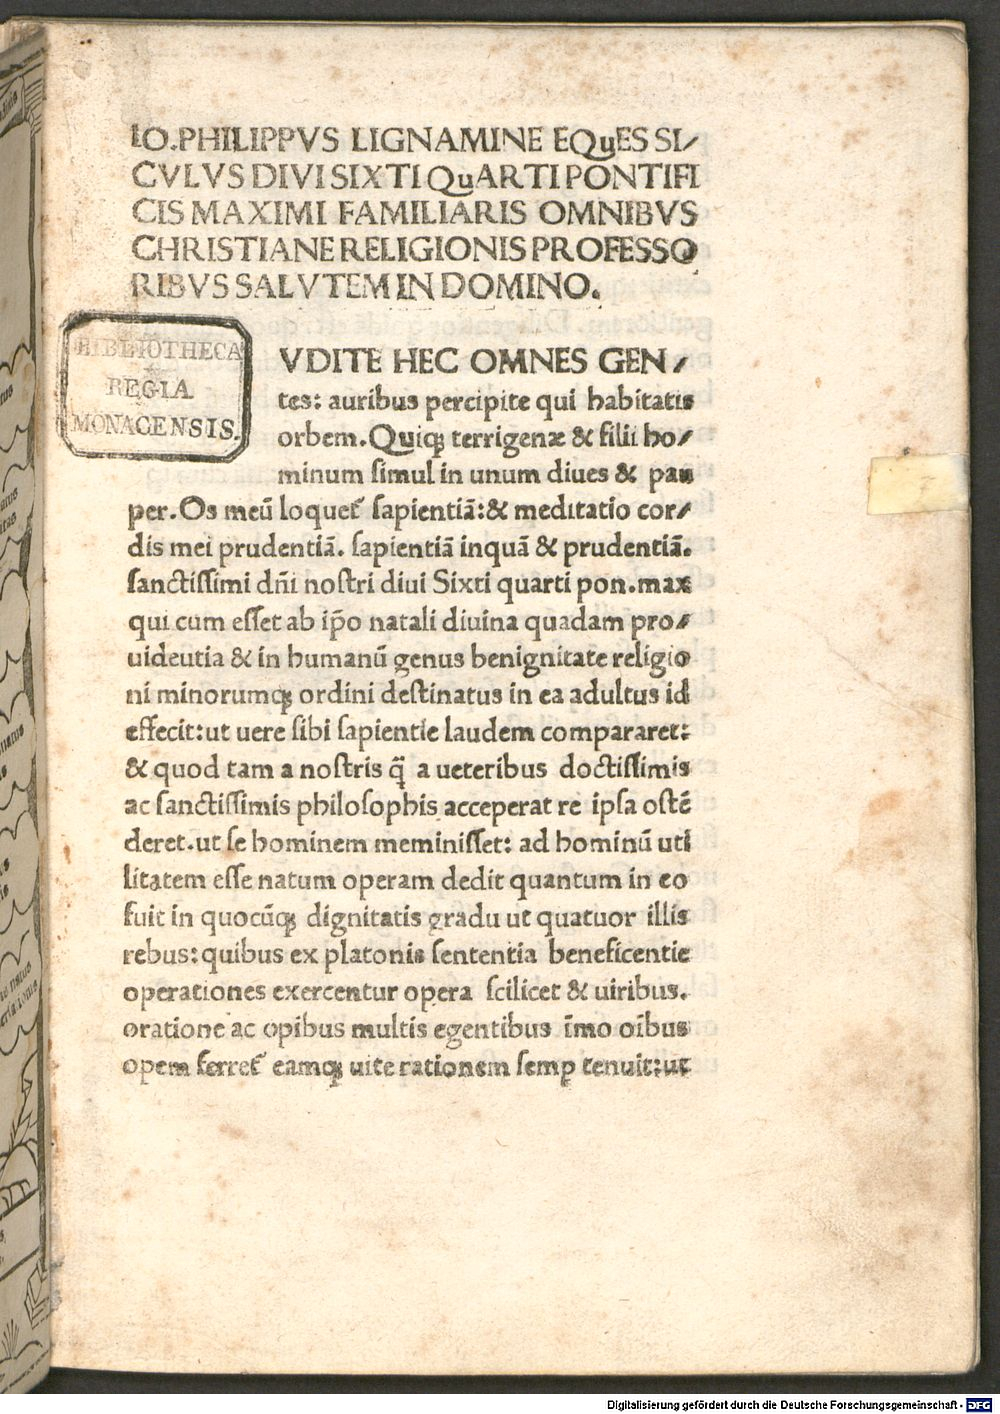 IO.PHILIPPVS LIGNAMINE EQuES SI/
CVLVS DIVI SIXTI QuARTI PONTIFI
CIS MAXIMI FAMILIARIS OMNIBVS
CHRISTIANE RELIGIONIS PROFESSO
RIBVS SALVTEM IN DOMINO.
BIBLIOTHECA
REGIA
MONACENSIS.
VDITE HEC OMNES GEN/
tes: auribus percipite qui habitatis
orbem. Quiqȝ terrigenæ & filii ho/
minum simul in unum diues & pau
per. Os meū loquet᷑ sapientiā: & meditatio cor/
dis mei prudentiā. sapientiā inquā & prudentiā.
sanctissimi dñi nostri diui Sixti quarti pon. max
qui cum esset ab ip̄o natali diuina quadam pro/
uideutia & in humanū genus benignitate religio
ni minorumqȝ ordini destinatus in ea adultus id
effecit: ut uere sibi sapientie laudem compararet:
& quod tam a nostris q̄ a ueteribus doctissimis
ac sanctissimis philosophis acceperat re ipsa ostē
deret. ut se hominem meminisset: ad hominū uti
litatem esse natum operam dedit quantum in eo
fuit in quocūqȝ dignitatis gradu ut quatuor illis
rebus: quibus ex platonis sententia beneficentie
operationes exercentur opera scilicet & uiribus.
oratione ac opibus multis egentibus īmo oībus
opem ferret᷑ eamqȝ uite rationem semꝑ tenuit: ut
Digitalisierung gefördert durch die Deutsche Forschungsgemeinschaft - DFG